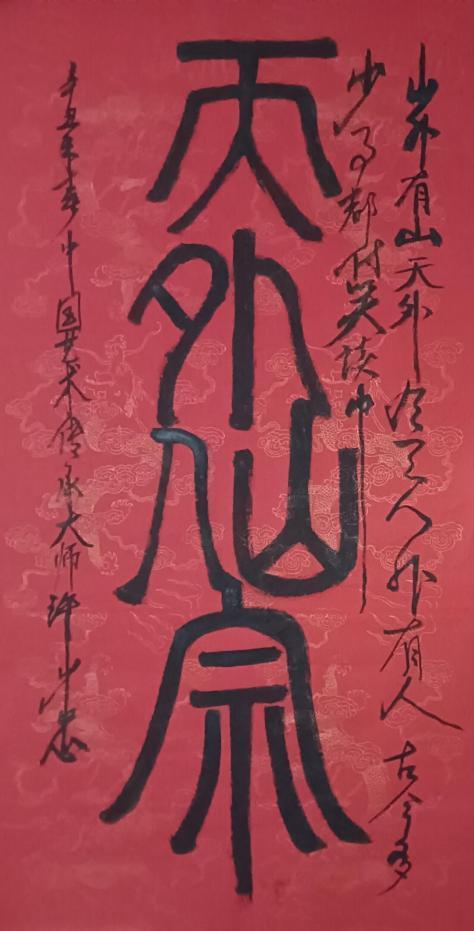 山外有山天外有天人外有人古今多
少事都付笑谈中
天外仙宗
辛丑年春中国艺术传承大师许忠